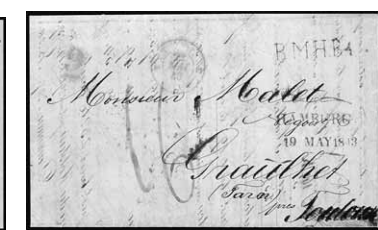 BMHB4
Monsieur Malet
HAMBURG
19 MAY 18
Graulhet
(Tarn)
près Toulouse